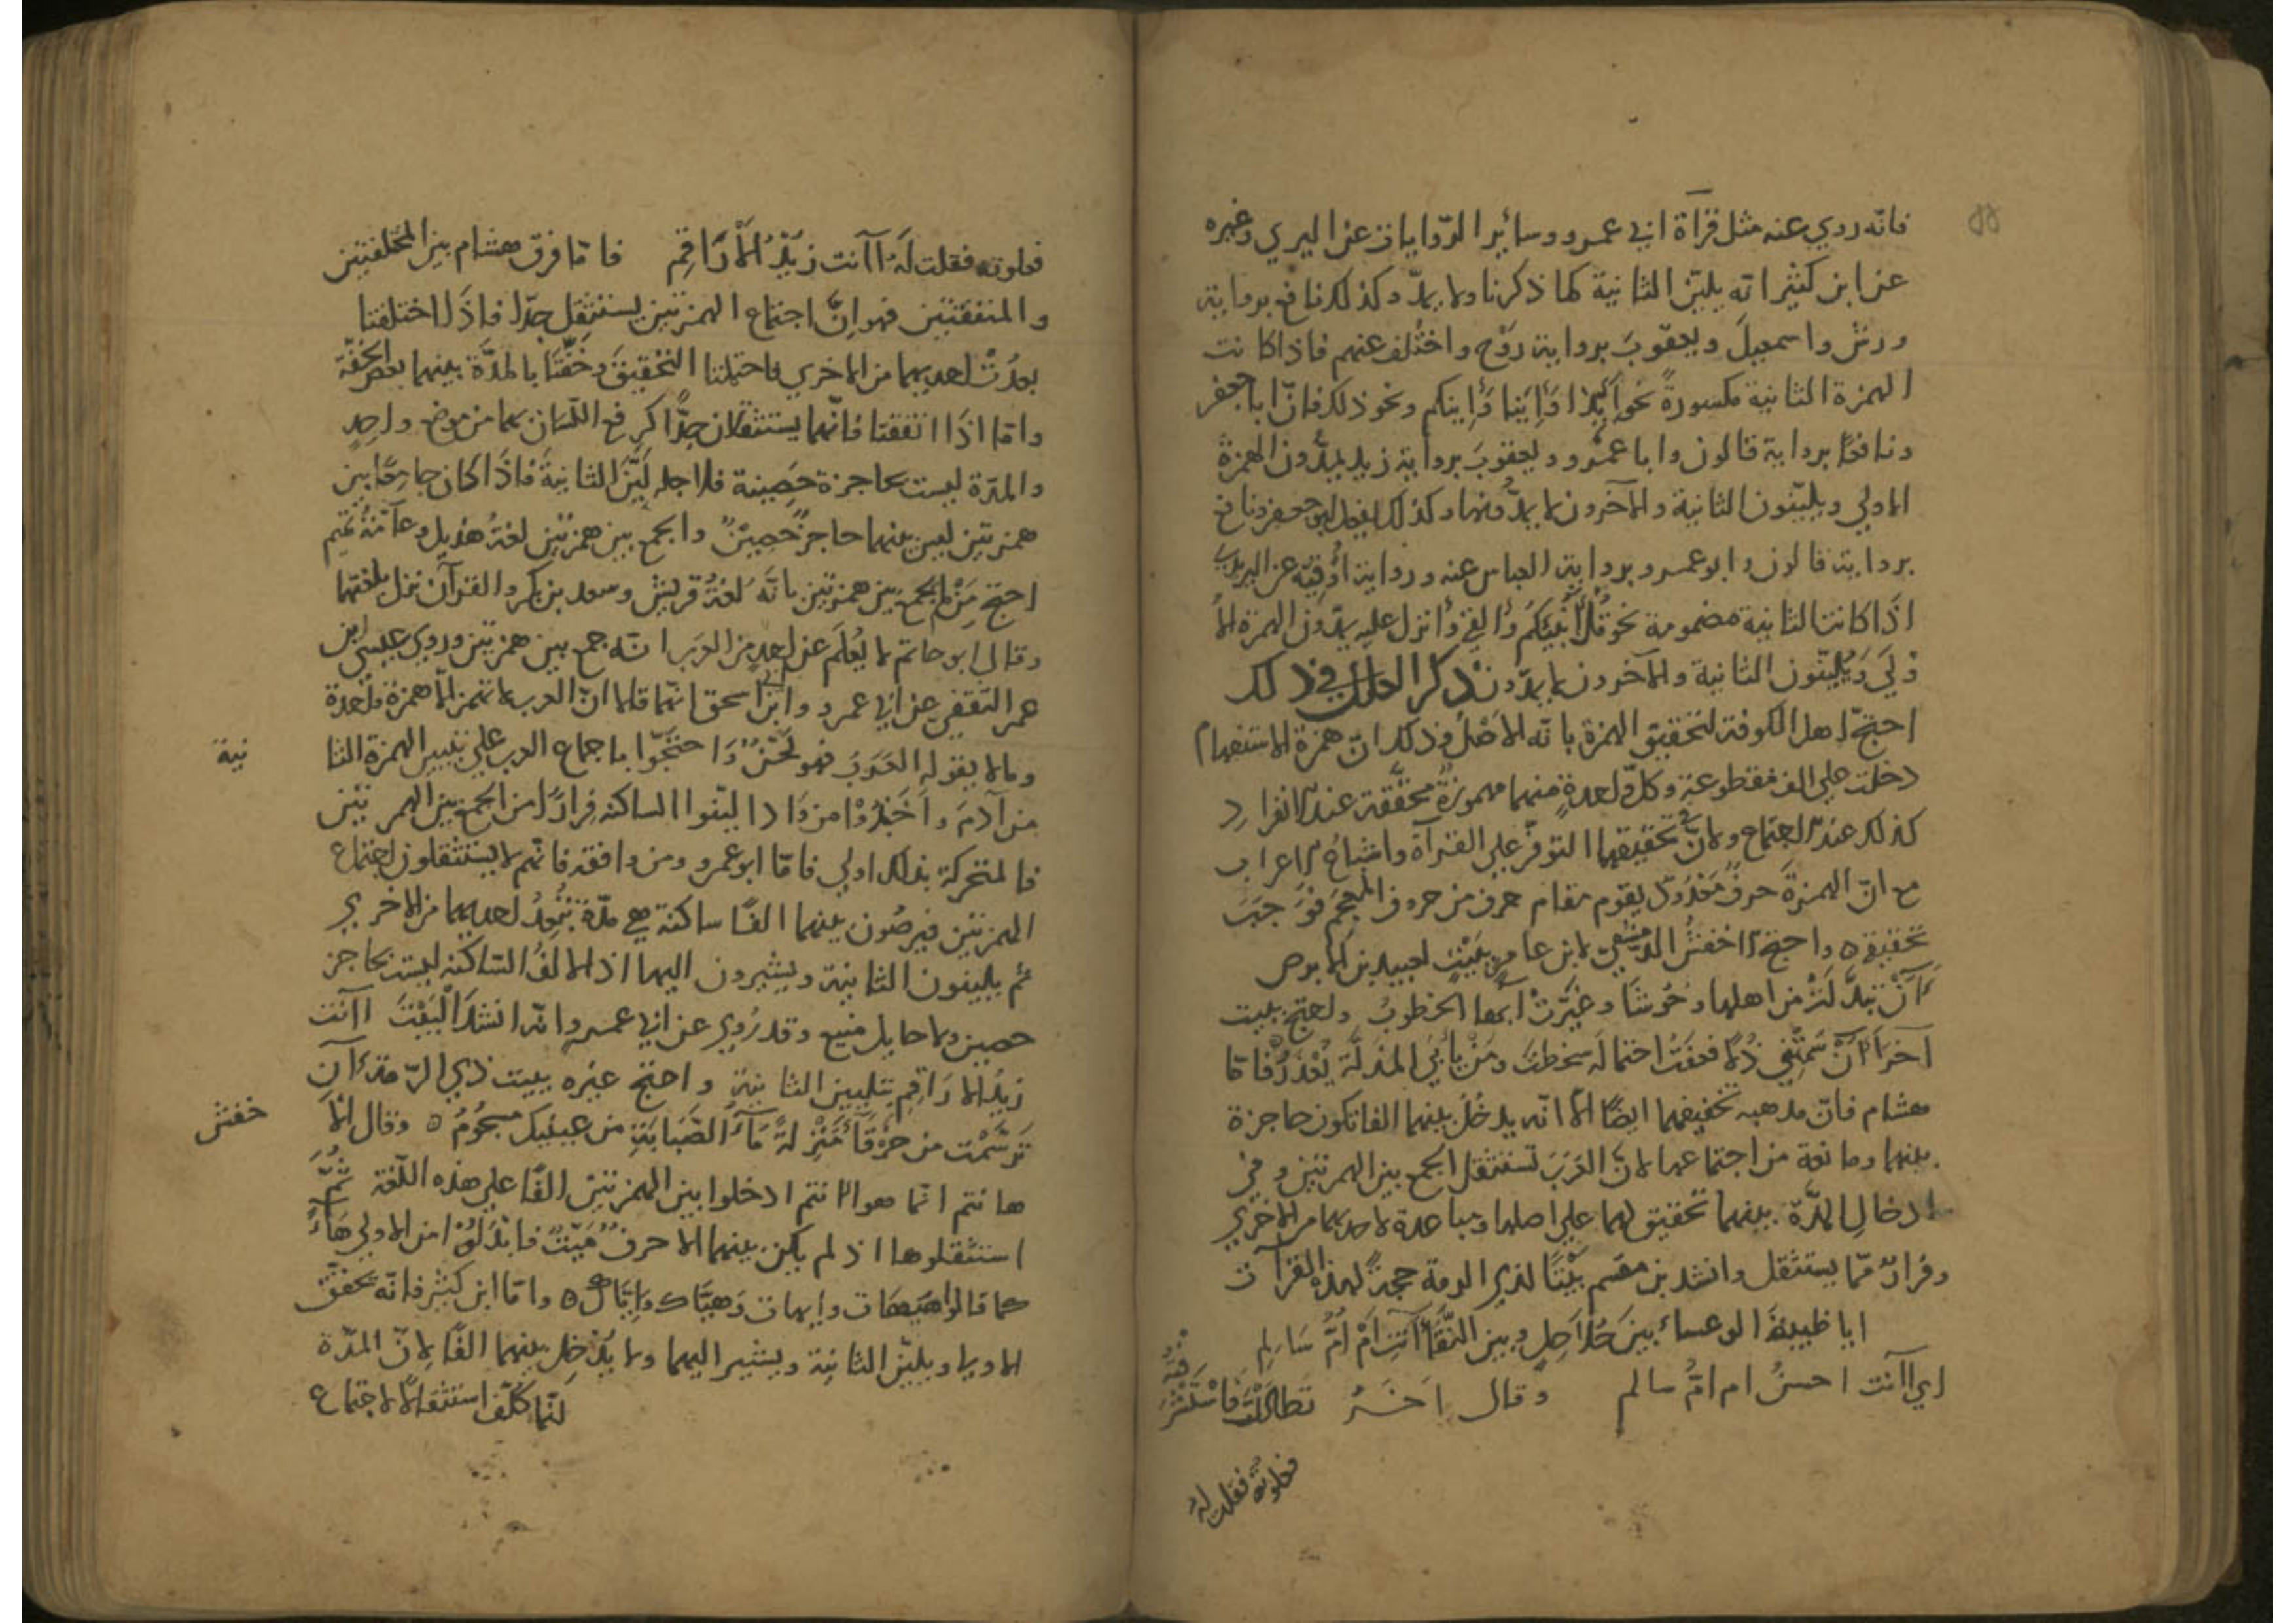 فانّه روي عنه مثل قرآة ابي عمرو وسائر الروايات عن اليزيدي وغيره
عن ابن كثير انه يليّن الثانية كما ذكرنا ولا يمدّ وكذلك نافع برواية
ورش واسمعيل ويعقوب برواية روح واختلف عنهم فاذا كانت
الهمزة الثانية مكسورة نحو أئذا وأئنا وأئنكم ونحو ذلك فانّ ابا جعفر
ونافعًا برواية قالون وابا عمرو ويعقوب برواية زيد يمدّون الهمزة
الاولي ويليّنون الثانية والآخرون لا يمدّونها وكذلك يفعل ابو جعفر ونافع
برواية قالون وابو عمرو برواية العباس عنه ورواية اوقية عن اليزيدي
اذا كانت الثانية مضمومة نحو قل أؤنبئكم وأألقي وأانزل عليه يمدّون الهمزة الأ
ولي ويليّنون الثانية والآخرون لا يمدّون ذكر العلل في ذلك
احتجّ اهل الكوفة لتحقيق الهمزة بانّه الاصل وذلك انّ همزة الاستفهام
دخلت علي الف مقطوعة وكلّ واحدة منهما مهموزة محقّقة عند الانفراد
كذلك عند الاجتماع ولانّ في تحقيقهما التوفّر علي القرآة واشباع الاعراب
مع انّ الهمزة حرف يقوم مقام حرف من حروف المعجم فوجب
تحقيقه ٥ واحتج الاخفش الدمشقي لابن عامر ببيت لعبيد بن الابرص
أأن تبدّلت من اهلها وحوشا وغيّرت آيها الخطوب واحتج ببيت
آخر أأن سمتني ذلًا فعفت احتماله سخطت ومن يأبي المذلّة يعذر فامّا
هشام فانّ مذهبه تخفيفهما ايضًا الّا انّه يدخل بينهما الفا تكون حاجزة
بينهما ومانعة من اجتماعهما لانّ العرب تستثقل الجمع بين الهمزتين وفي
ادخال المدّة بينهما تحقيق لهما علي اصلهما ومباعدة لاحديهما من الاخري
وفرار ممّا يستثقل وانشد بن مقسم بيتًا لذي الرمة حجة لهذه القرآت
ايا ظبية الوعساء بين حلاحل وبين النقا أأنت ام امّ سالم
اي اانت احسن ام امّ سالم وقال آخر تطاللت فاستشرفته
فعلوته فقلت له
فعلوته فقلت له اانت زيد الاراقم فامّا فرق هشام بين المختلفتين
والمتفقتين فهو انّ اجتماع الهمزتين يستثقل جدّا فاذا اختلفتا
بعدت احديهما من الاخري فاحتملتا التحقيق وخفّتا بالمدّة بينهما بعض الخفّة
وامّا اذا اتفقتا فانّهما يستثقلان جدًّا كرفع اللسان بهما من موضع واحد
والمدّة ليست بحاجزة حصينة فلاجله ليّن الثانية فاذا كان جامعًا بين
همزتين ليس بينهما حاجز حصين والجمع بين همزتين لغة هذيل وعآمة تميم
احتج من لم يجمع بين همزتين بانّه لغة قريش وسعد بن بكر والقرآن نزل بلغتهما
وقال ابو حاتم لا يعلم عن احد من العرب انه جمع بين همزتين وروي عيسي ابن
عمر الثقفي عن ابي عمرو وابن ابي اسحق انهما قالا انّ العرب لا تهمز الّا همزة واحدة
وما لا يقوله العرب فهو لحن واحتجّوا باجماع العرب علي تغيير الهمزة الثا
نية
من آدم وآخر اذا ليّنوا الساكنة فرارًا من الجمع بين الهمزتين
فالمتحركة بذلك اولي فامّا ابو عمرو ومن وافقه فانّهم لا يستثقلون اجتماع
الهمزتين بينهما الفًا ساكنة هي مدّة تبعد احديهما من الاخري
ثم يليّنون الثانية ويشيرون اليها اذ الالف الساكنة ليست بحاجز
حصين ولا حايل منيع وقد روي عن ابي عمرو انّه انشد البيت اانت
زيد الاراقم بتليين الثانية واحتج غيره ببيت ذي الرّمة أان
ترسّمت من خرقآء منزلة مآء الصّبابة من عينيك مسجوم ٥ وقال الا
خفش
هانتم انّما هو اانتم ادخلوا بين الهمزتين الفًا علي هذه اللّغة ثمّ
استثقلوها اذ لم يكن بينهما الا حرف ميّت فابدلوا من الاولي هآء
كما قالوا هيهات وايهات وهيّاك وايّاك ٥ وامّا ابن كثير فانّه يحقّق
الاولي ويليّن الثانية ويشير اليها ولا يدخل بينهما الفًا لانّ المدّة
انّما كلّف استثقالا لاجتماع